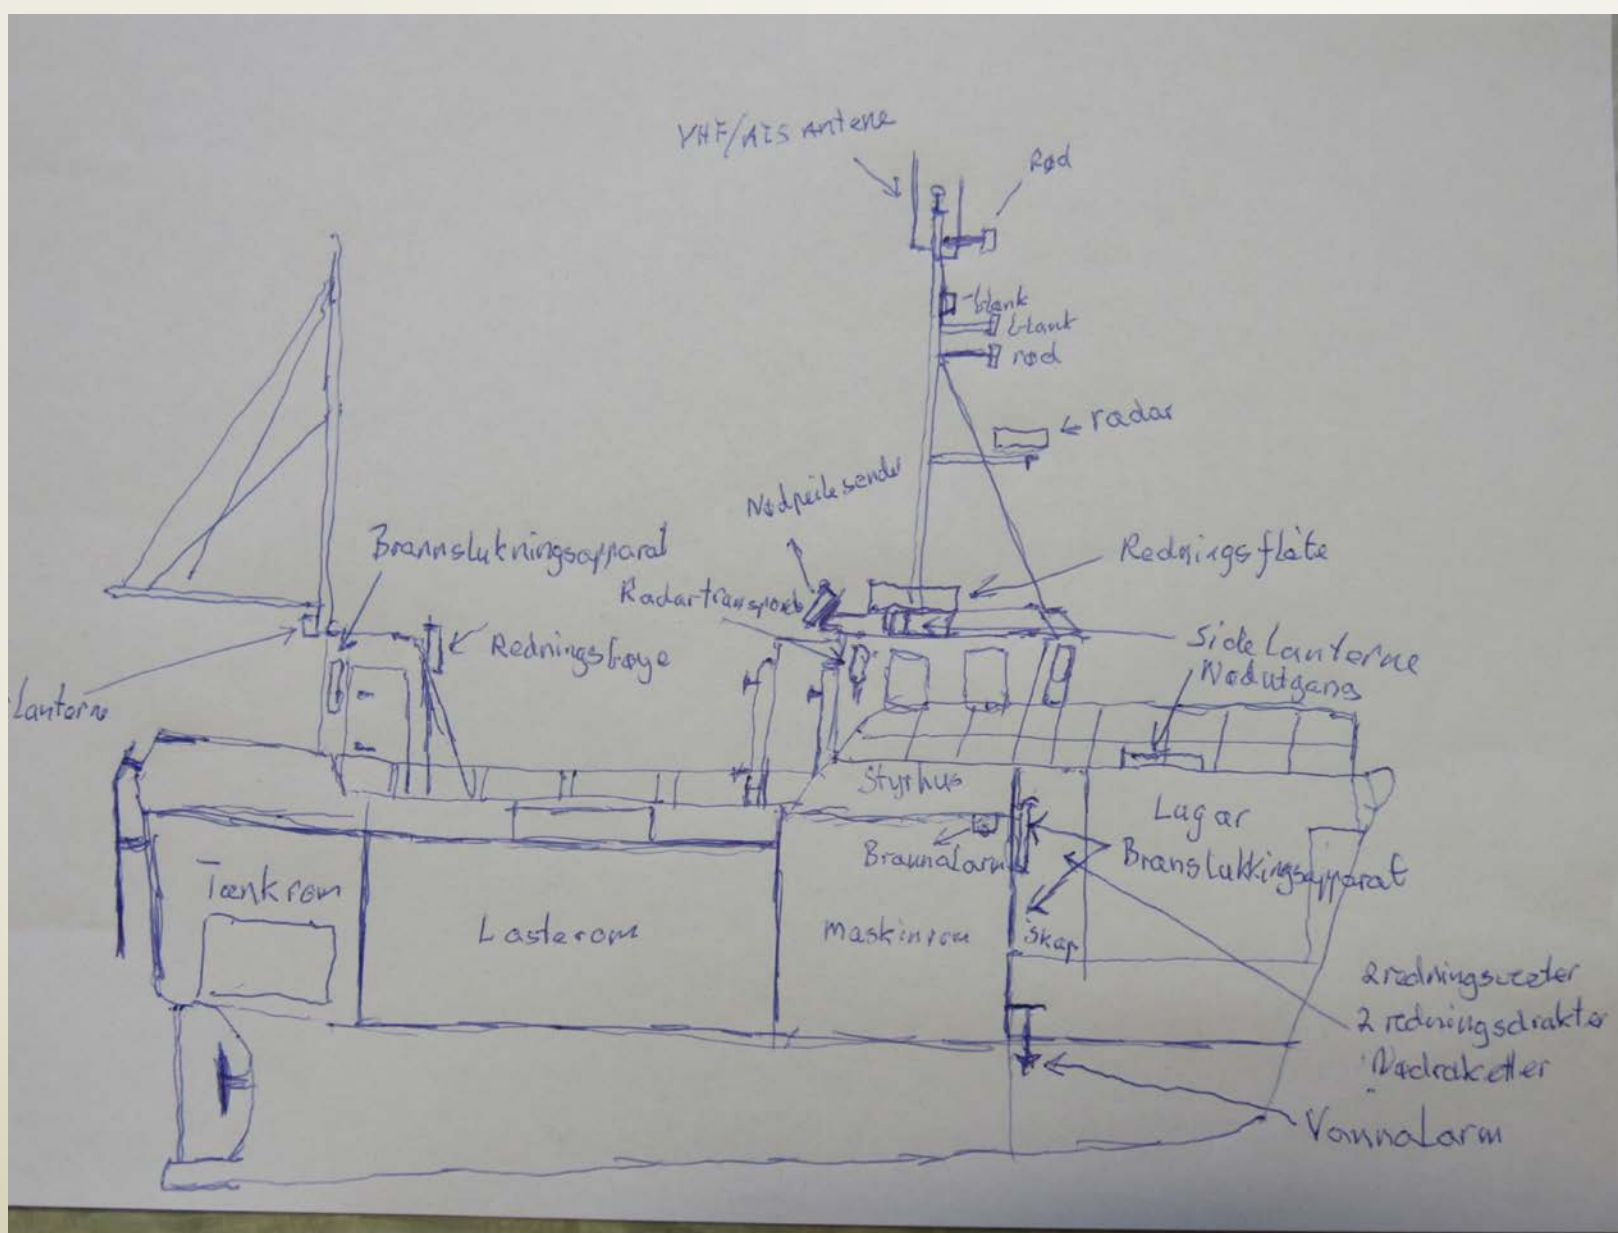 VHF/AIS Antene
Rød
blank
blank
rød
radar
Nødpeilesender
Brannslukningsapparat
Radartransponder
Redningsflåte
Redningsbøye
Side Lanterne
Nødutgang
Lanterne
Styrhus
Lugar
Brannalarm
Branslukkingsapparat
Tankrom
Lasterom
Maskinrom
iskap
2 redningsvester
2 redningsdrakter
Nødraketter
Vannalarm